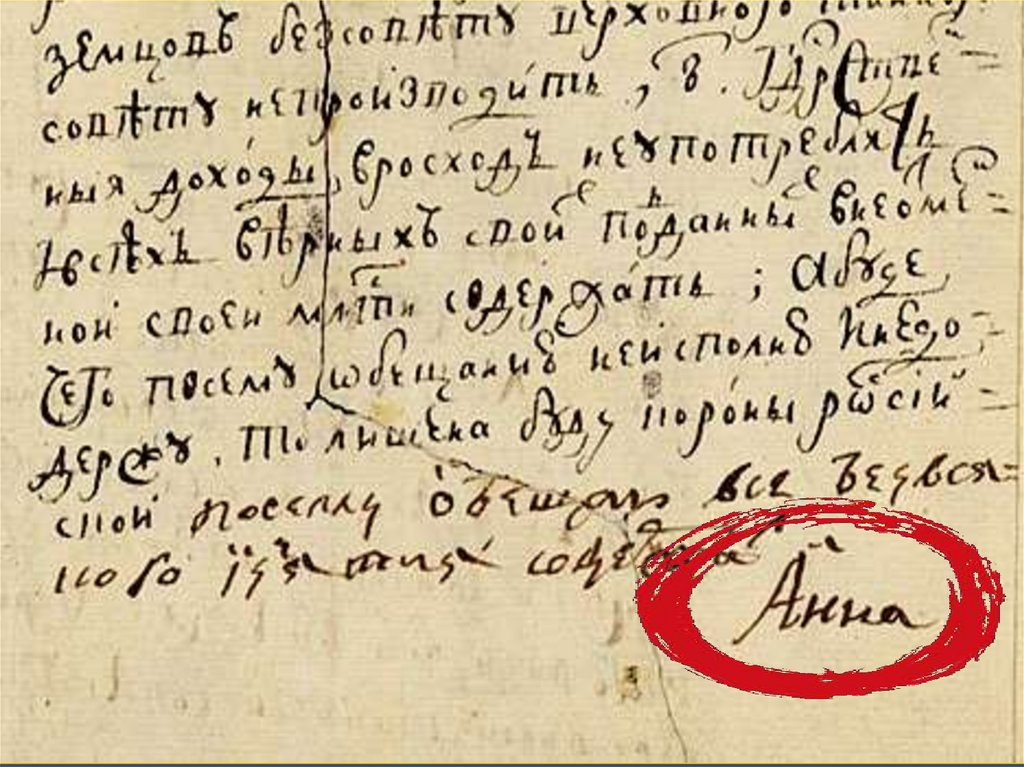 земцовъ безсовѣту верховного таинног
совѣту непроизводить, 8. Гдрствен=
ныя доходы, вросходъ неупотреблять
Ивсѣхъ вѣрныхъ свои поданны внеоме=
нои своеи млти содержать; абуде
чего посему ѡбещанию неисполню Инедо=
держу, то лишена буду короны рѡсіи=
скои посему обещаю все безвся=
кого изятия содержать
Анна